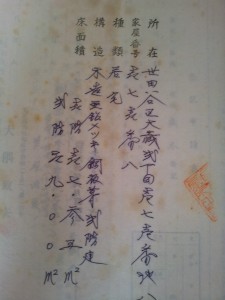 所在 世田谷区大蔵弐丁目壱七壱番地八
家屋番号 壱七壱番八
種類 居宅
構造 木造亜鉛メッキ鋼板葺弐階建
床面積 壱階 壱七・参五㎡
弐階 壱九・〇〇㎡